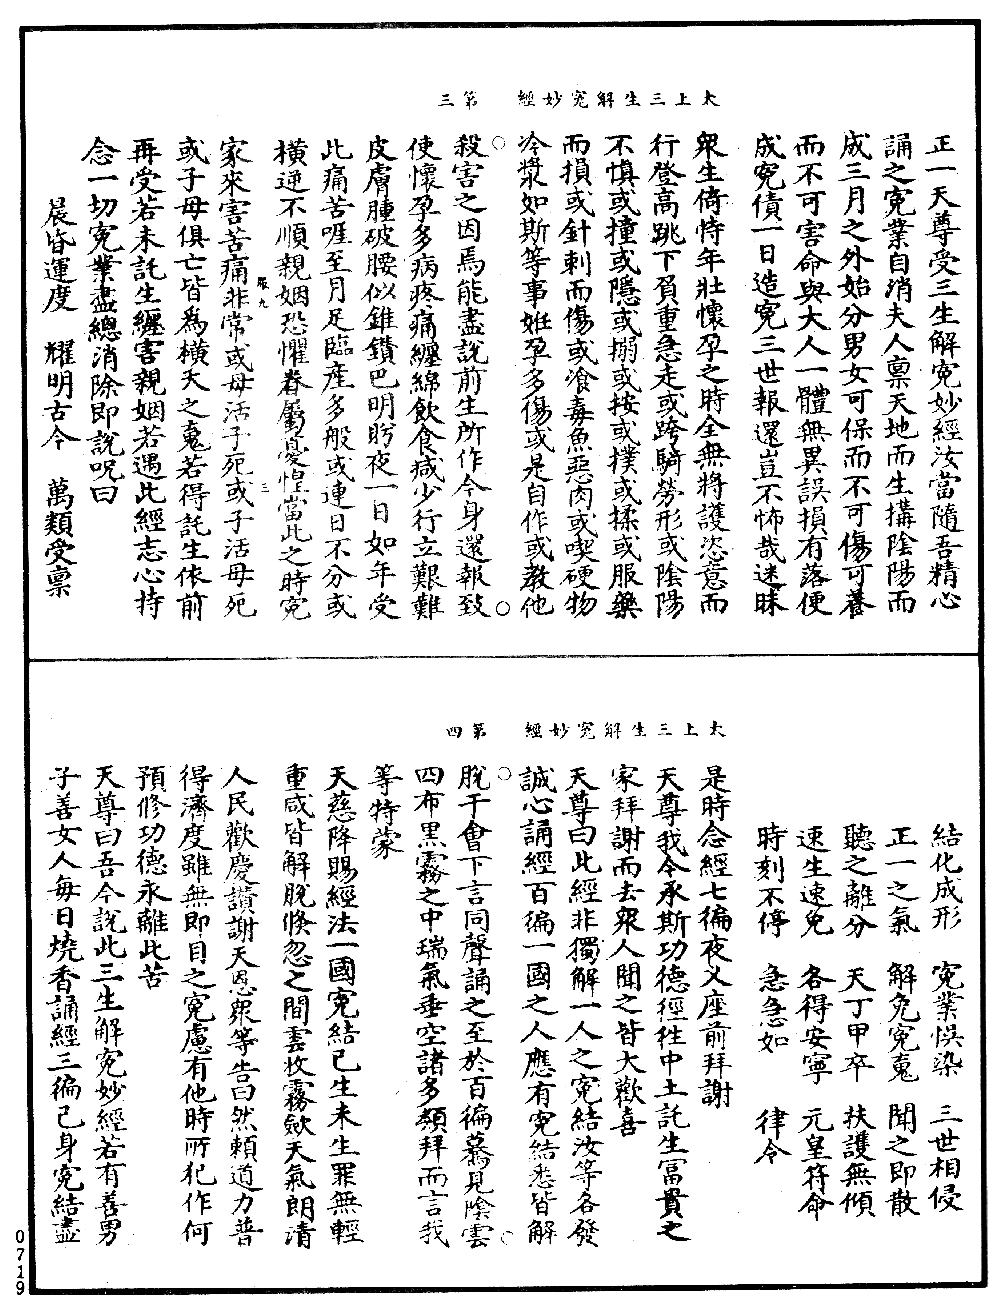 太上三生解冤妙經　第三
正一天尊受三生解冤妙經汝當隨吾精心
誦之冤業自消夫人稟天地而生搆陰陽而
成三月之外始分男女可保而不可傷可養
而不可害命與大人一體無異誤損有落便
成冤債一日造冤三世報還豈不怖哉迷昧
衆生倚恃年壯懷孕之時全無將護恣意而
行登高跳下負重急走或跨騎勞形或陰陽
不慎或撞或隱或搦或按或撲或揉或服藥
而損或針刺而傷或飡毒魚惡肉或喫硬物
冷漿如斯等事姙孕多傷或是自作或教他
殺害之因焉能盡說前生所作今身還報致
使懷孕多病疼痛纏綿飲食減少行立艱難
皮膚腫破腰似錐鑽巴明盻夜一日如年受
此痛苦啀至月足臨產多般或連日不分或
橫逆不順親姻恐懼眷屬憂惶當此之時冤
服九　三
家來害苦痛非常或母活子死或子活母死
或子母俱亡皆為橫夭之鬼若得託生依前
再受若未託生纏害親姻若遇此經志心持
念一切冤業盡總消除即說呪曰
晨昏運度　耀明古今　萬類受稟
太上三生解冤妙經　第四
結化成形　冤業悞染　三世相侵
正一之氣　解免冤鬼　聞之即散
聽之離分　天丁甲卒　扶護無傾
速生速免　各得安寧　元皇符命
時刻不停　急急如　律令
是時念經七徧夜乂座前拜謝
天尊我今承斯功德徑往中土託生富貴之
家拜謝而去衆人聞之皆大歡喜
天尊曰此經非獨解一人之冤結汝等各發
誠心誦經百徧一國之人應有冤結悉皆解
脫于會下言同聲誦之至於百徧驀見陰雲
四布黑霧之中瑞氣垂空諸多纇拜而言我
等特蒙
天慈降賜經法一國冤結已生未生罪無輕
重咸皆解脫倏忽之間雲收霧歛天氣朗清
人民歡慶讚謝天恩衆等告曰然賴道力普
得濟度雖無即目之冤慮有他時所犯作何
預修功德永離此苦
天尊曰吾今說此三生解冤妙經若有善男
子善女人每日燒香誦經三徧已身冤結盡
0719